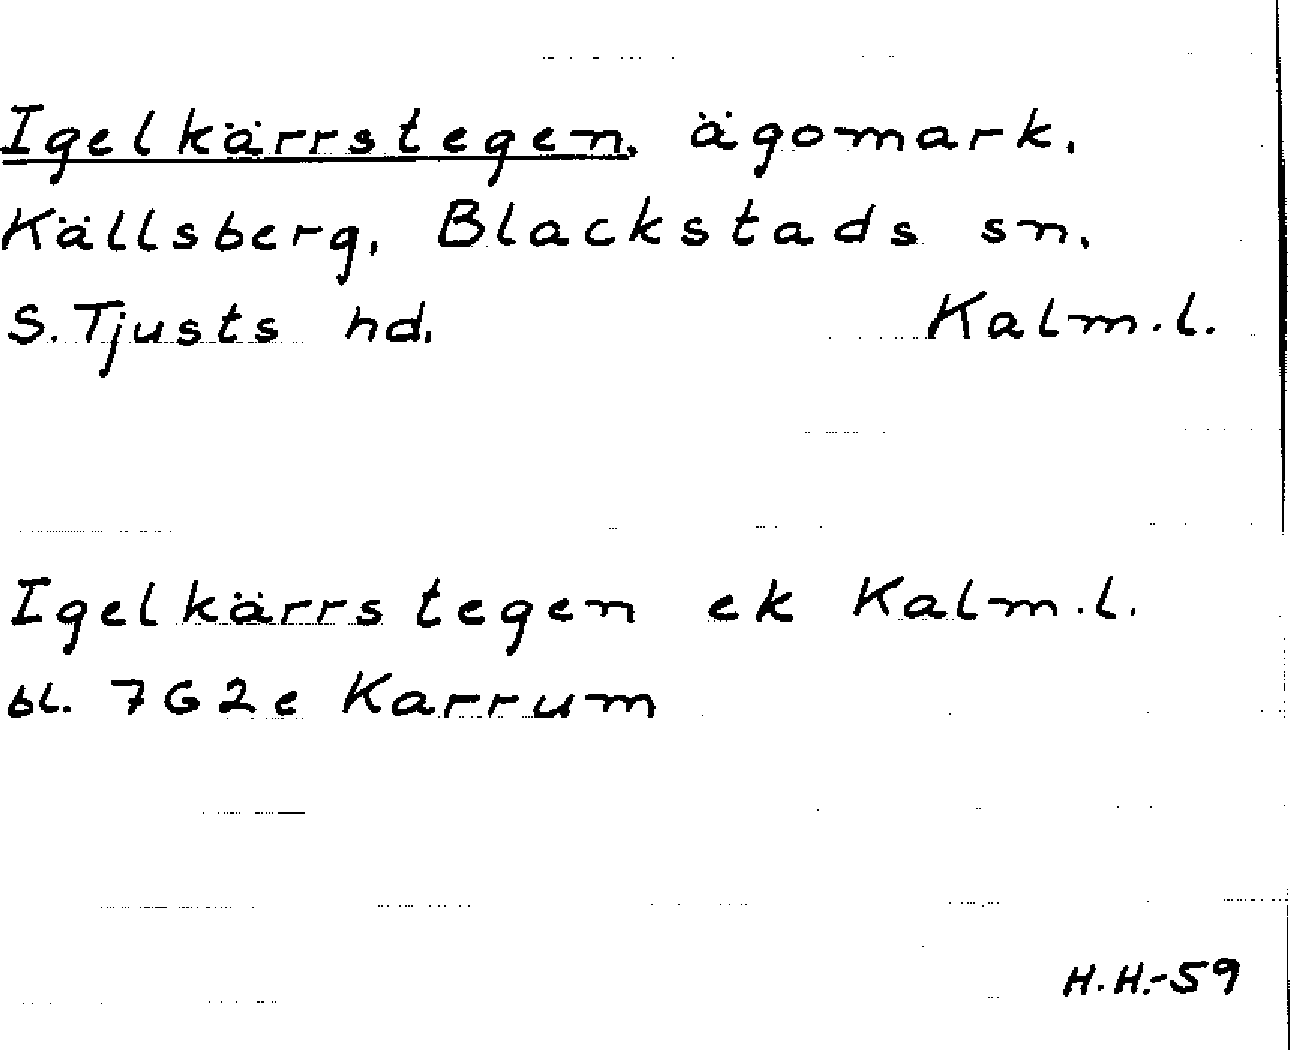 Igelkärrstegen, ägomark,
Källsberg, Blackstads sn,
S. Tjusts hd, Kalm.l.
Igelkärrstegen ek Kalm.l.
bl. 7G2e Karrum
H.H.-59